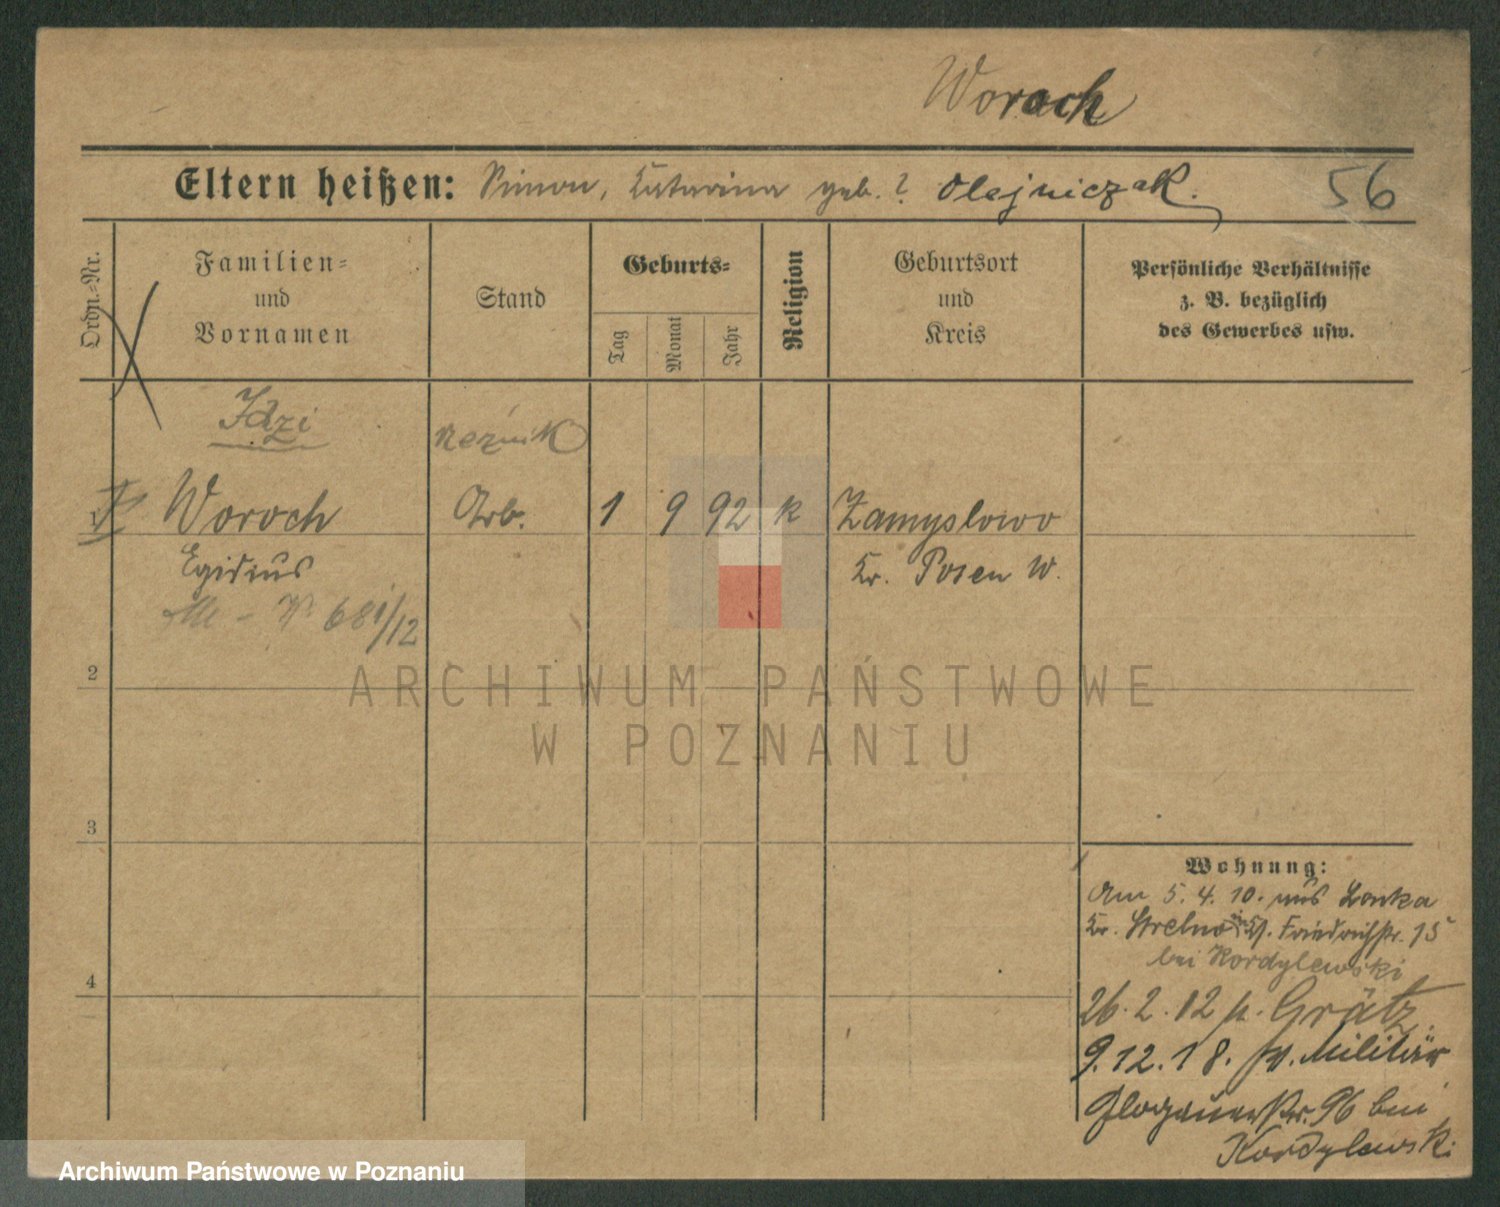 Worach
Eltern heißen: Simon, Katarina geb. ? Olejniczak.
56
Ordn.-Nr.
Familien-
und
Vornamen
Stand
Geburts-
Tag
Monat
Jahr
Religion
Geburtsort
und
Kreis
Persönliche Verhältnisse
z. B. bezüglich
des Gewerbes usw.
Idzi
rzeźnik
Woroch Arb. 1 9 92 k Zamyslowo
Egidius Kr. Posen W.
681/12
2
3
4
Wohnung:
Am 5. 4. 10. aus Lonka
Kr. Strelno Friedrichstr. 15
bei Kordylewski
26. 2. 12 n. Grätz
9. 12. 18. v. Militär
Glogauerstr. 96 bei
Kordylewski
ARCHIWUM PAŃSTWOWE
W POZNANIU
Archiwum Państwowe w Poznaniu